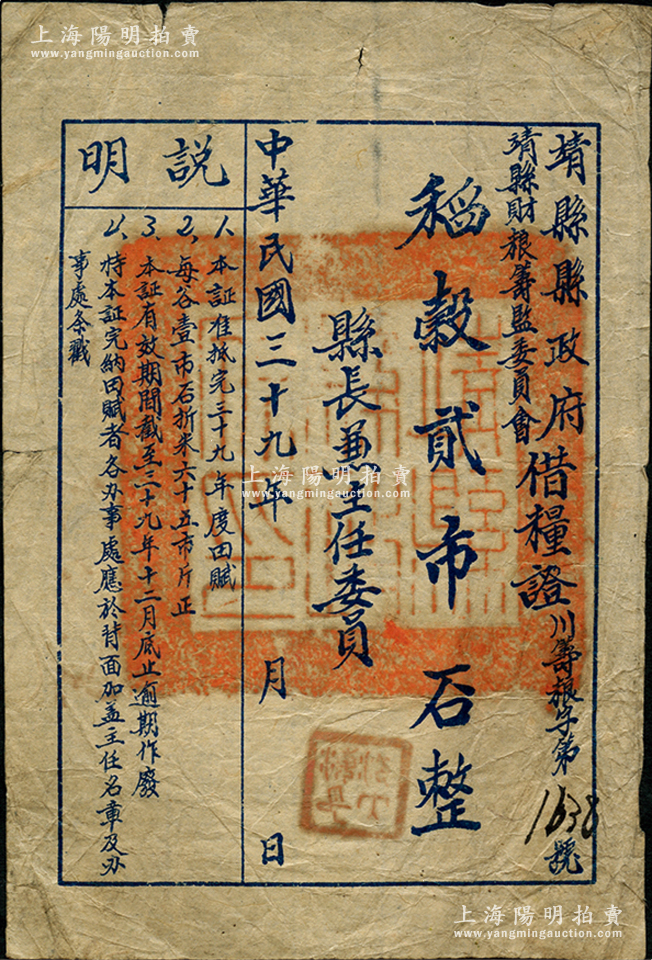 上海陽明拍賣
www.yangmingauction.com
靖縣縣政府
靖縣財粮籌監委員會
借糧證
川籌粮字第1638號
稻穀貳市石整
縣長兼主任委員
中華民國三十九年 月 日
説明
1、本証准抵完三十九年度田賦
2、每谷壹市石折米六十五市斤正
3、本証有效期間截至三十九年十二月底止逾期作廢
4、持本証完納田賦者各办事處應於背面加盖主任名章及办
事處条戳
上海陽明拍賣
www.yangmingauction.com
上海陽明拍賣
www.yangmingauction.com